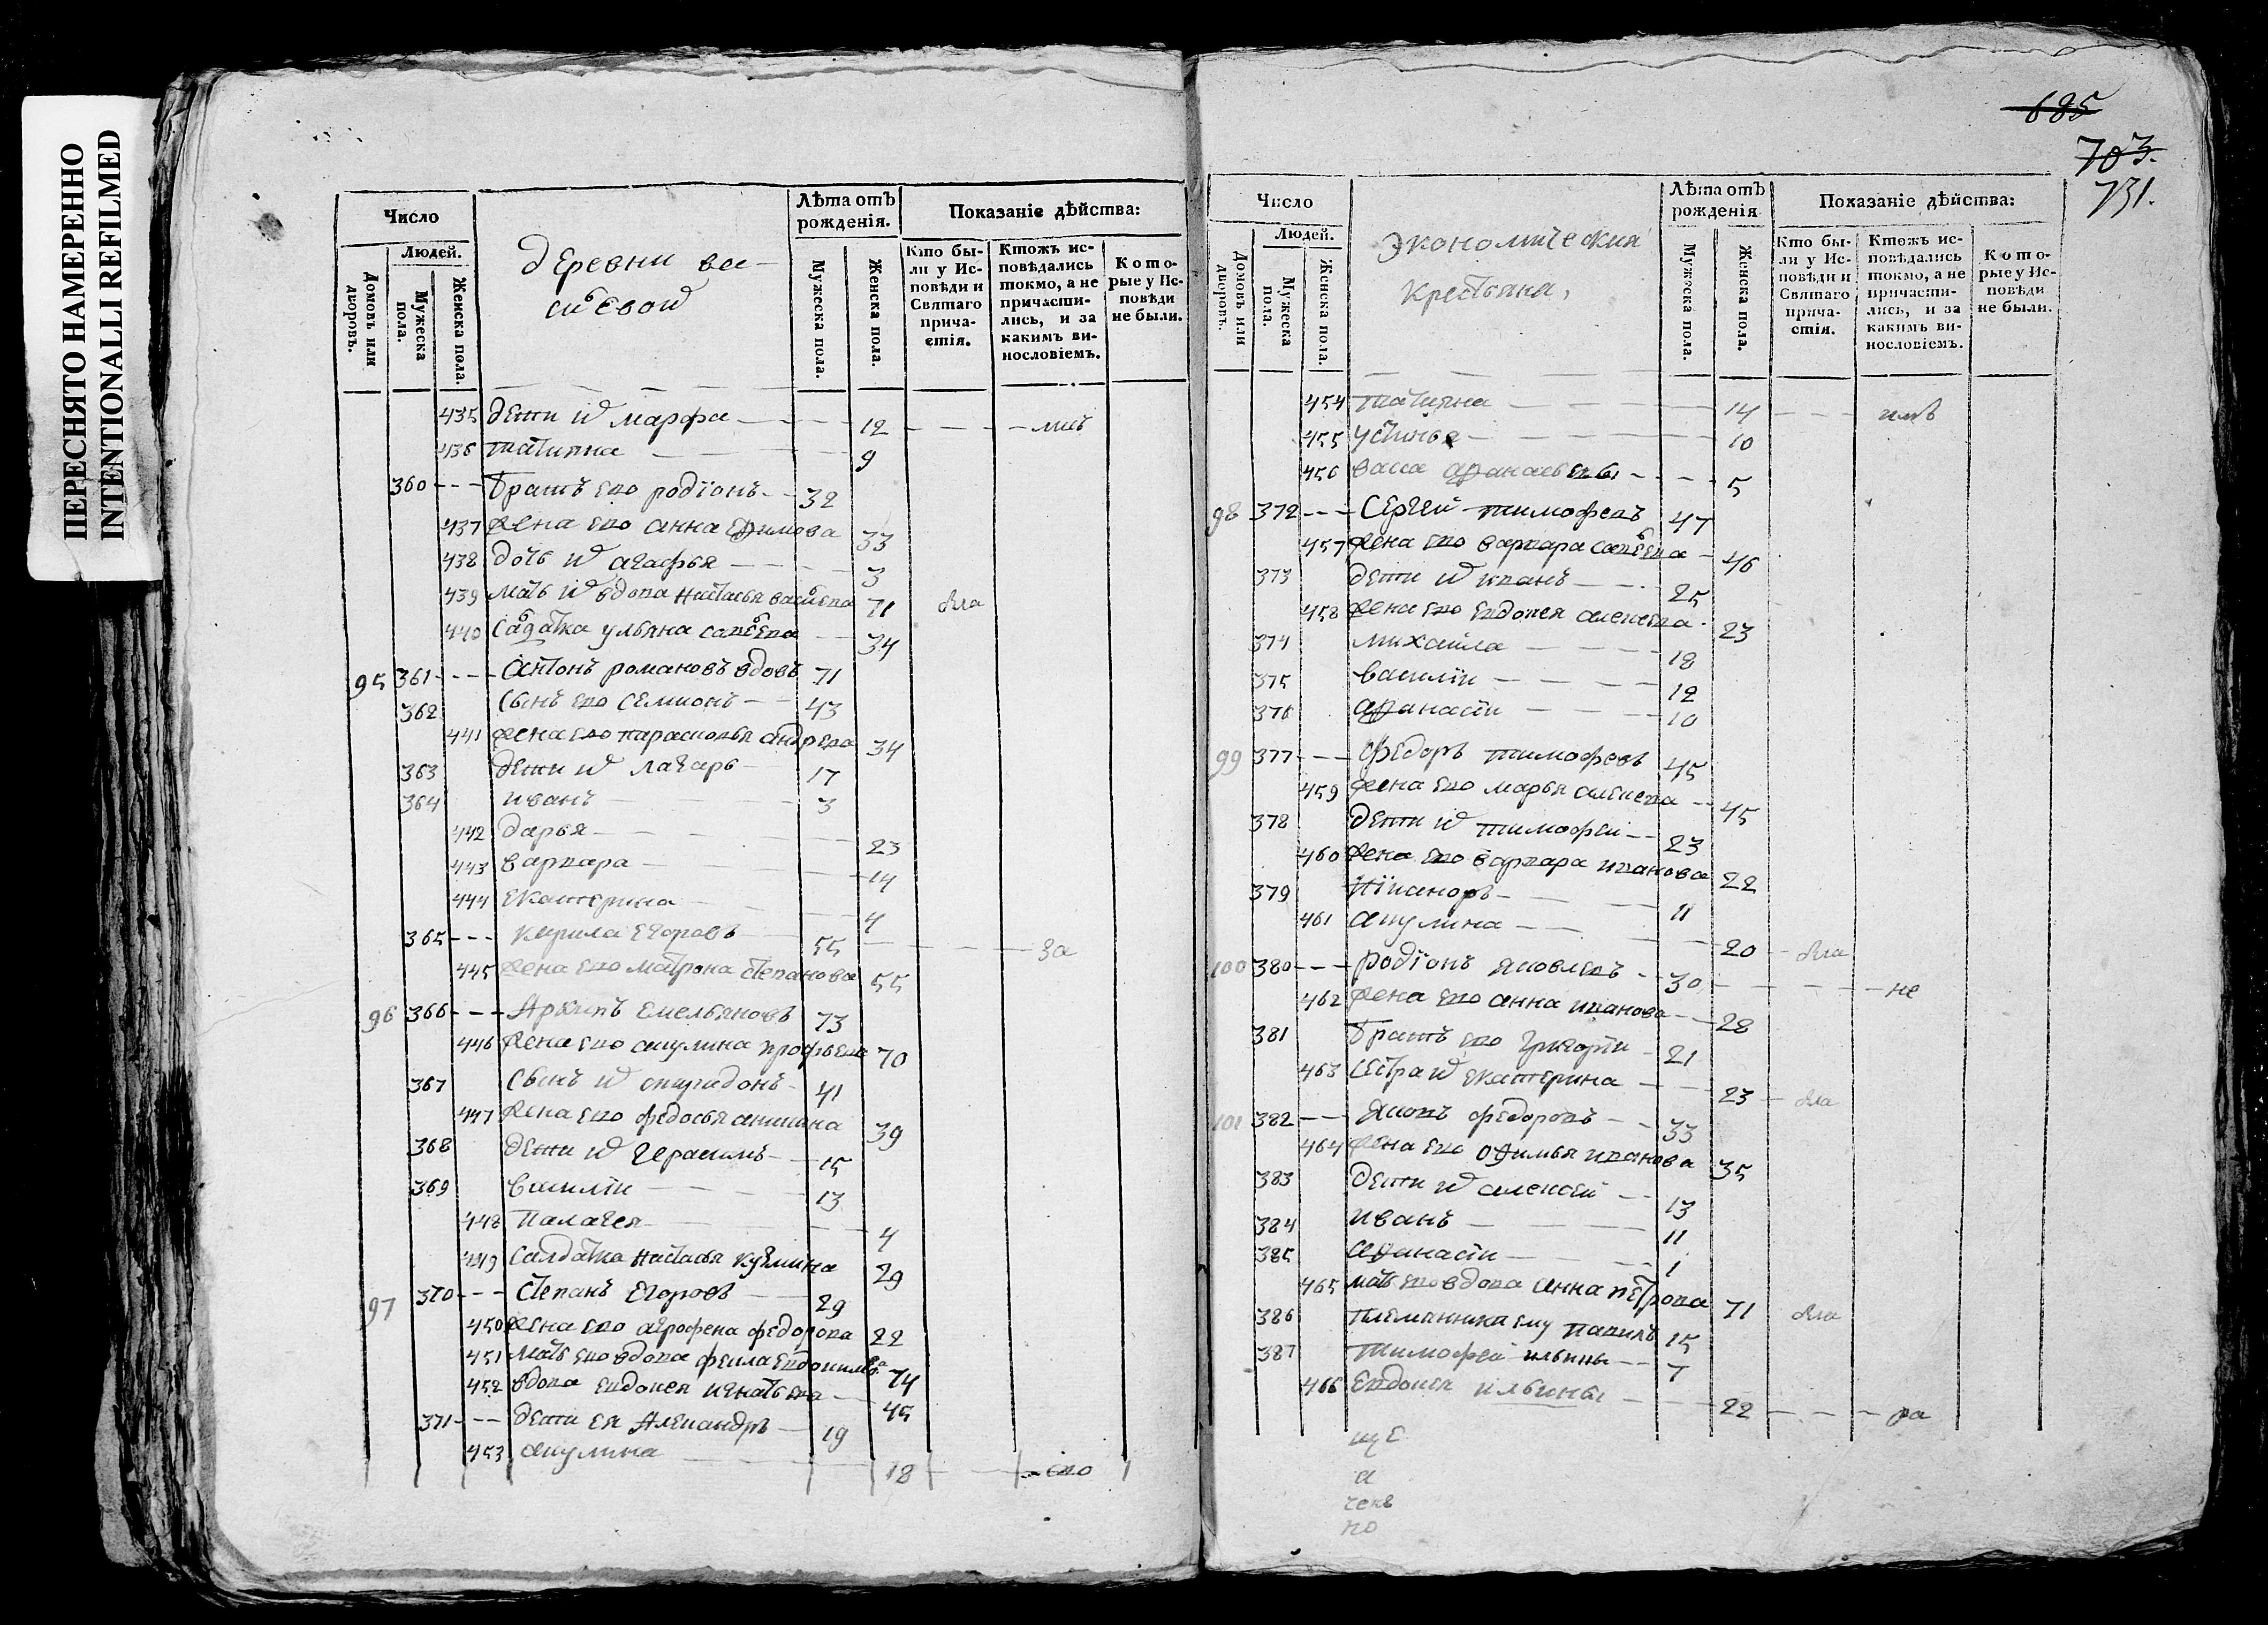 ПЕРЕСНЯТО НАМЕРЕННО
INTENTIONALLI REFILMED
Число
Людей.
Домовъ или дворовъ.
Мужеска пола.
Женска пола.
деревни ва-
сильевои
Лѣта отъ рожденія.
Мужеска пола.
Женска пола.
Показаніе дѣйства:
Кто бы-
ли у Ис-
повѣди и
Святаго
прича-
стія.
Ктожъ ис-
повѣдались
токмо, а не
причасти-
лись, и за
какимъ ви-
нословіемъ.
Кото-
рые у Ис-
повѣди
не были.
435 дети их марфа 12
436 татияна 9
360 братъ ево родїонъ 32
437 жена ево анна ефимова 33
438 дочь их агафья 3
439 мать их вдова настасья васильева 71 бла
440 салдатка ульяна савельева 34
95 361 антонъ романовъ вдовъ 71
362 сынъ ево семионъ 43
441 жена ево парасковья андреева 34
363 дети их лазарь 17
364 иванъ 3
442 дарья 23
443 варвара 14
444 екатерина 4
365 кирила егоровъ 55 за
445 жена ево матрона степанова 55
96 366 Архипъ емельяновъ 73
446 жена ево акулина 70
367 сынъ их спиридонъ 41
447 жена ево федосья аникина 39
368 дети их герасимъ 15
369 василіи 13
448 палагея 4
449 салдатка настасья кузмина 29
97 370 степанъ егоровъ 29
450 жена ево агрофена федорова 22
451 мать ево вдова фекла евдокимова 74
452 вдова евдокея игнатьева 45
371 дети ея Алеѯандръ 19
453 акулина 18 ево
685
703.
731.
Число
Людей.
Домовъ или дворовъ.
Мужеска пола.
Женска пола.
экономическия
крестьяна,
Лѣта отъ рожденія
Мужеска пола.
Женска пола.
Показаніе дѣйства:
Кто бы-
ли у Ис-
повѣди и
Святаго
прича-
стія.
Ктожъ ис-
повѣдались
токмо, а не
причасти-
лись, и за
какимъ ви-
нословіемъ.
Кото-
рые у Ис-
повѣди
не были.
454 татияна 14
455 устинья 10
456 васа афанасьевы 5
98 372 Сергеи тимофеевъ 47
457 жена ево варвара савельева 46
373 дети их иванъ 25
458 жена ево евдокея алекеева 23
374 михаила 18
375 василіи 12
376 афанасіи 10
99 377 федоръ тимофеевъ 45
459 жена ево марья алекеева 45
378 дети их тимофеи 23
460 жена ево варвара иванова 22
379 Никаноръ 11
461 акулина 20 бла
100 380 родїонъ яковлевъ 30 не
462 жена ево анна иванова 28
381 братъ ево григорїи 21
463 сестра их екатерина 23 бла
101 382 яковъ федоровъ 33
464 жена ево офимья иванова 35
383 дети их алексеи 13
384 иванъ 11
385 афанасіи 1
465 мать ево вдова анна петрова 71 бла
386 племянника ему павилъ 15
387 тимофеи ильины 7
466 евдокея ильины 22 ра